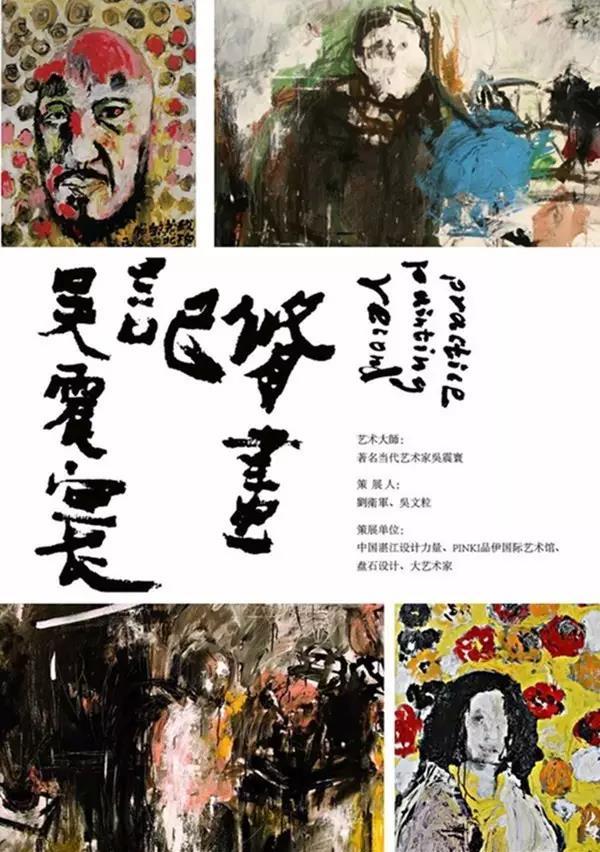 修畫
記
吳震寰
practice
painting
record
艺术大師:
著名当代艺术家吳震寰
策 展 人:
劉衛軍、吳文粒
策展单位:
中国湛江设计力量、PINKI品伊国际艺术馆、
盘石设计、大艺术家